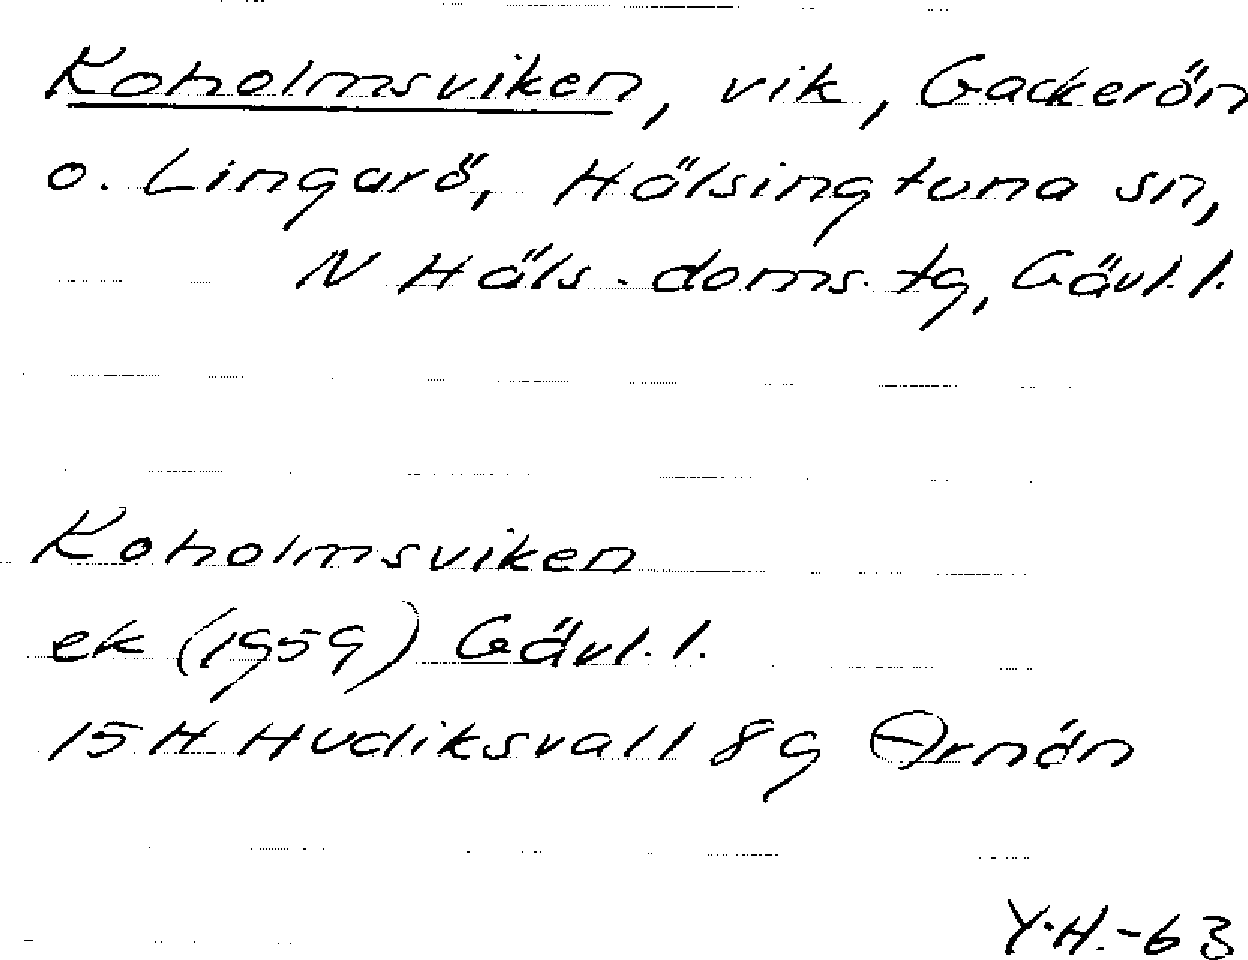 Koholmsviken, vik, Gackerön
o. Lingarö, Hälsingtuna sn,
N Häls. doms. tg, Gävl. l.
Koholmsviken
ek (1959) Gävl. l.
15 H Hudiksvall 8 g Arnön
Y.H.-63